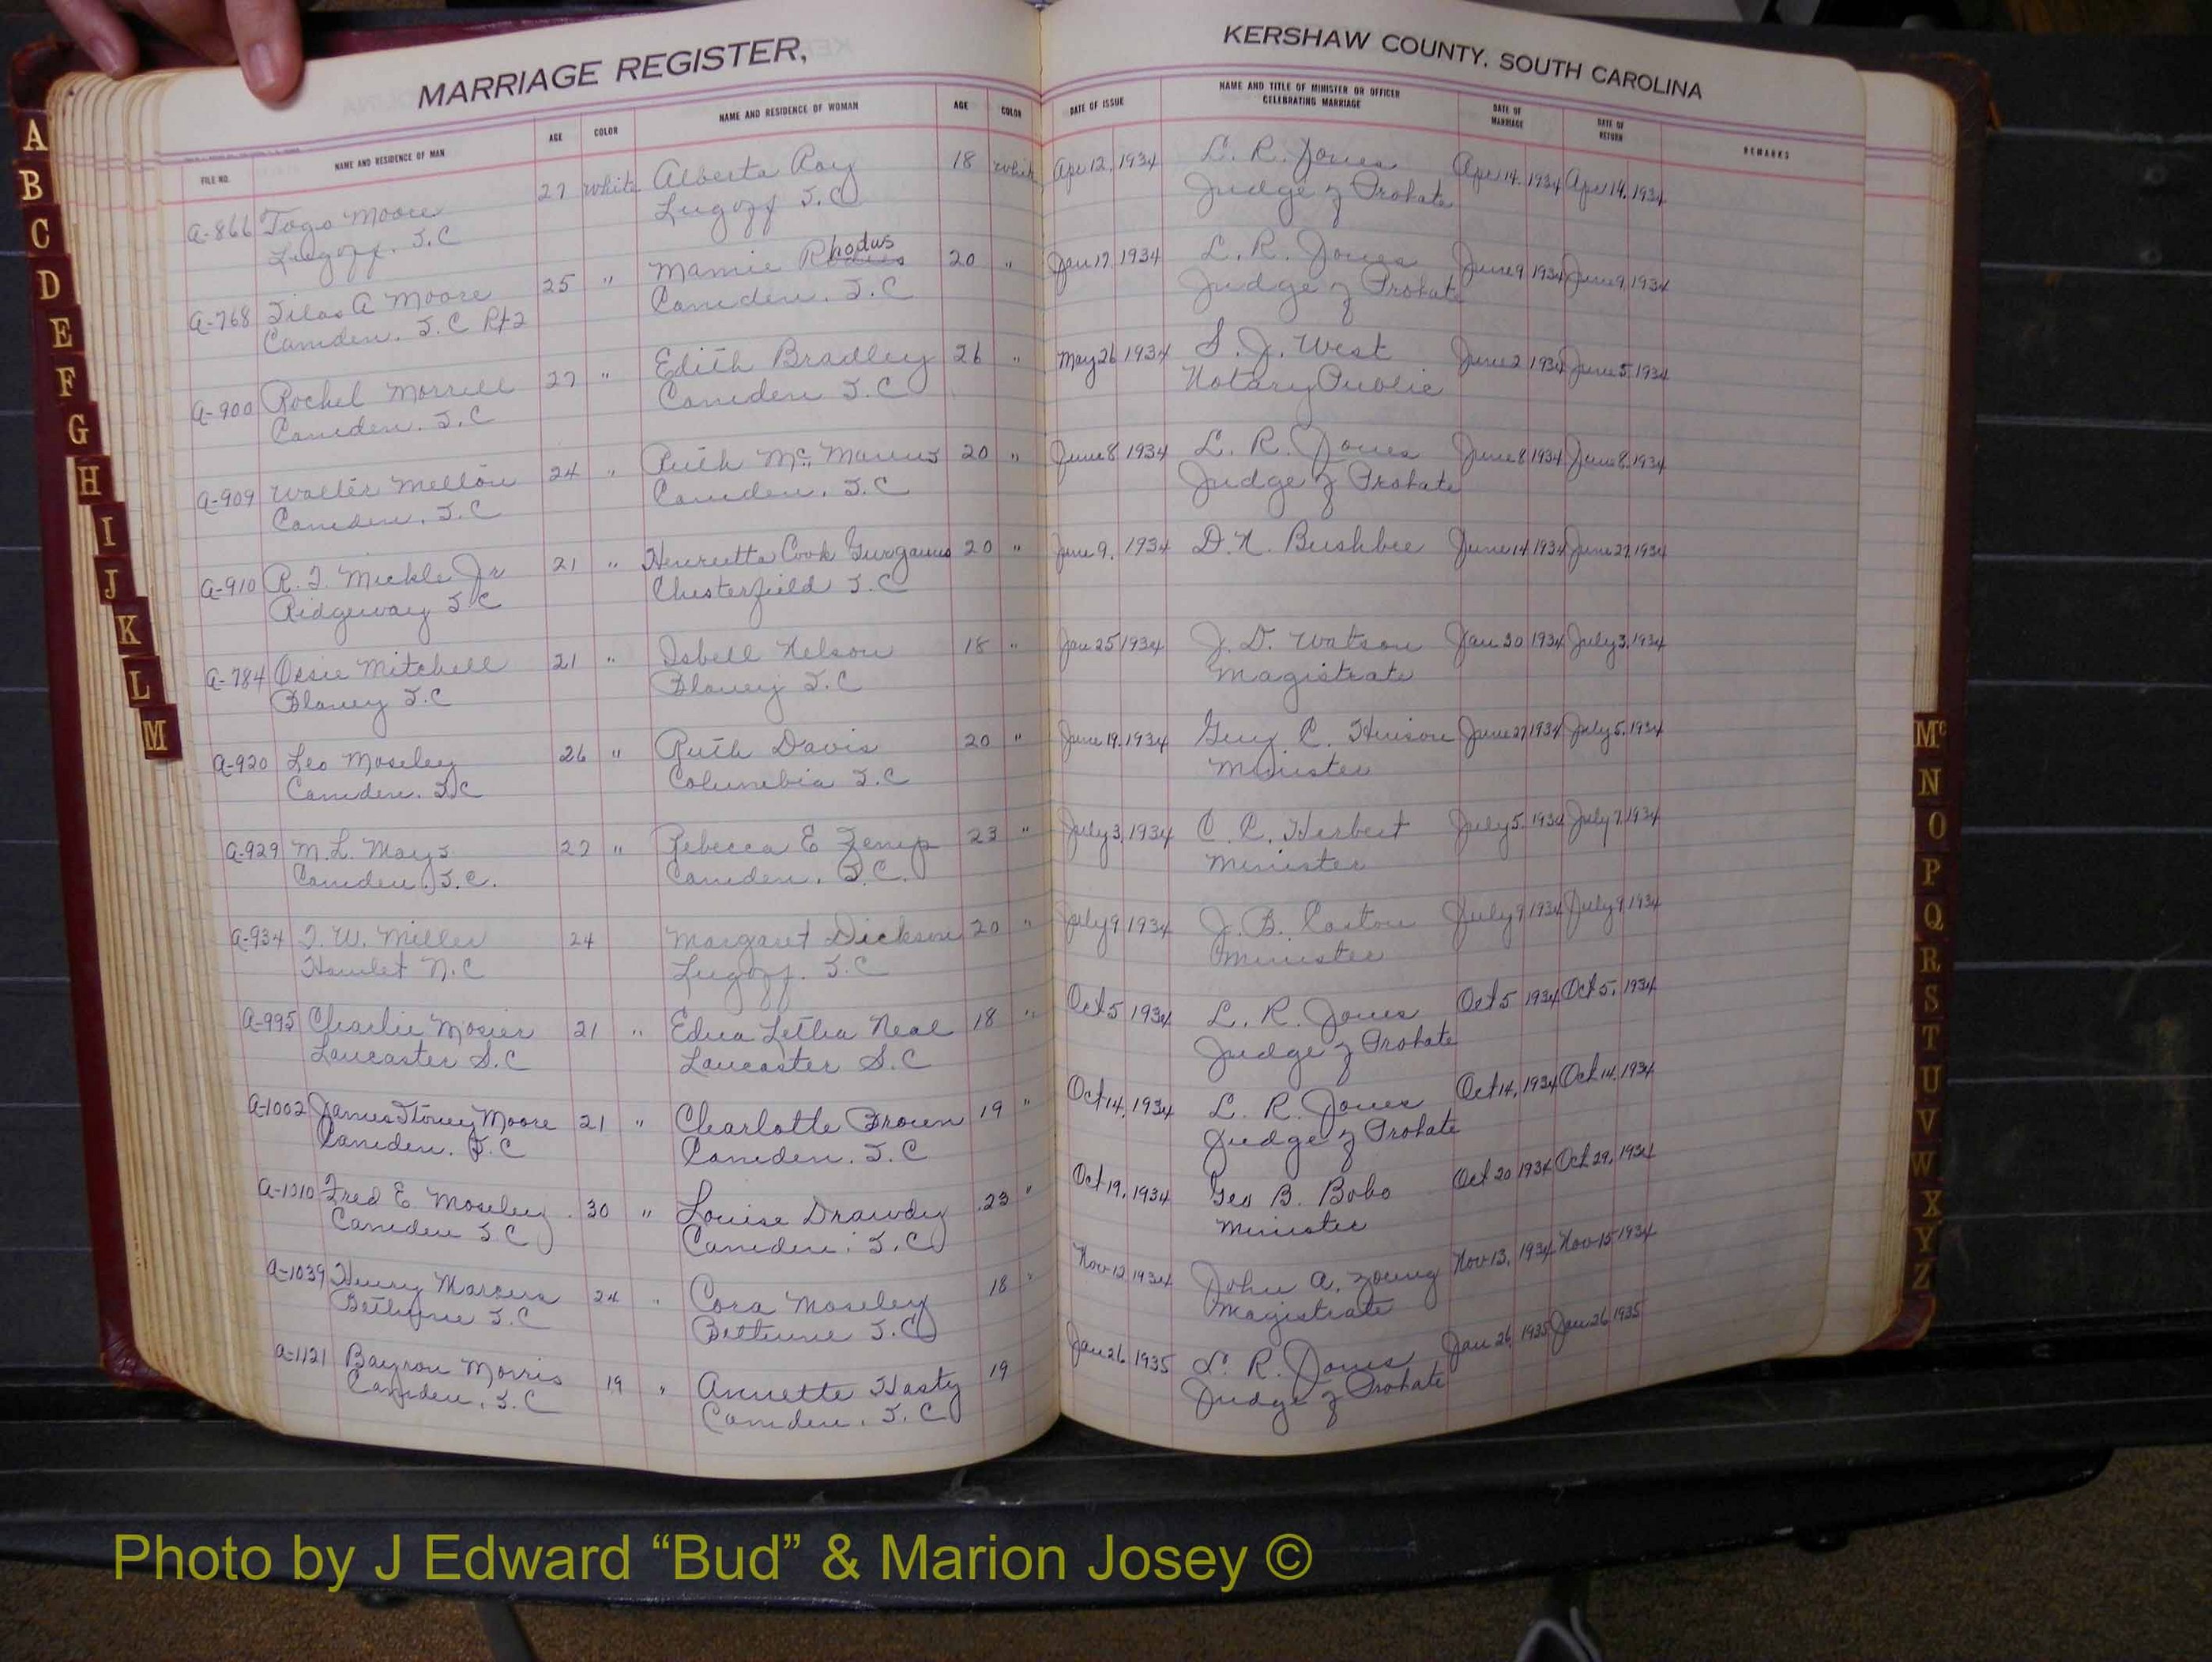 MARRIAGE REGISTER,
KERSHAW COUNTY, SOUTH CAROLINA
FILE NO. NAME AND RESIDENCE OF MAN AGE COLOR NAME AND RESIDENCE OF WOMAN AGE COLOR DATE OF ISSUE NAME AND TITLE OF MINISTER OR OFFICER CELEBRATING MARRIAGE DATE OF MARRIAGE DATE OF RETURN REMARKS
A-866 Togo Moore 27 white Alberta Ray 18 white Apr 12, 1934 L. R. Jones Apr 14, 1934 Apr 14, 1934
Lugoff, S.C Lugoff S.C Judge of Probate
A-768 Silas A Moore 25 " Mamie Rhodus 20 " Jan 17 1934 L. R. Jones June 9 1934 June 9, 1934
Camden, S.C Rt 2 Camden, S.C Judge of Probate
A-900 Rochel Morrell 27 " Edith Bradley 26 " May 26 1934 S. J. West June 2 1934 June 5, 1934
Camden, S.C Camden S.C Notary Public
A-909 Walter Mellon 24 " Ruth McManus 20 " June 8 1934 L. R. Jones June 8 1934 June 8, 1934
Camden, S.C Camden, S.C Judge of Probate
A-910 R. T. Mickle Jr 21 " Henrietta Cook Gurganus 20 " June 9, 1934 D. N. Bushbee June 14 1934 June 27, 1934
Ridgeway S.C Chesterfield S.C
A-784 Ossie Mitchell 21 " Isbell Nelson 18 " Jan 25 1934 J. D. Watson Jan 30 1934 July 3, 1934
Blaney S.C Blaney S.C Magistrate
A-920 Leo Moseley 26 " Ruth Davis 20 " June 19, 1934 Guy C. Hinson June 27 1934 July 5, 1934
Camden, S.C Columbia S.C Minister
A-929 M. L. Mays 27 " Rebecca E Zemp 23 " July 3, 1934 C. C. Herbert July 5, 1934 July 7, 1934
Camden, S.C. Camden, S.C. Minister
A-934 T. W. Miller 24 Margaret Dickson 20 " July 9 1934 J. B. Caston July 9 1934 July 9, 1934
Hamlet N.C Lugoff, S.C Minister
A-995 Charlie Mosier 21 " Edna Letha Neal 18 " Oct 5 1934 L. R. Jones Oct 5 1934 Oct 5, 1934
Lancaster S.C Lancaster S.C Judge of Probate
A-1002 James Storey Moore 21 " Charlotte Brown 19 " Oct 14, 1934 L. R. Jones Oct 14, 1934 Oct 14, 1934
Camden, S.C Camden, S.C Judge of Probate
A-1010 Fred E Moseley 30 " Louise Drawdy 23 " Oct 19, 1934 Geo B. Bobo Oct 20 1934 Oct 29, 1934
Camden S.C Camden, S.C Minister
A-1039 Henry Marcus 24 " Cora Moseley 18 " Nov 12 1934 John A. Young Nov 13, 1934 Nov 15 1934
Bethune S.C Bethune S.C Magistrate
A-1121 Bayron Morris 19 " Annette Hasty 19 Jan 26 1935 L. R. Jones Jan 26, 1935 Jan 26 1935
Camden, S.C Camden, S.C Judge of Probate
A
B
C
D
E
F
G
H
I
J
K
L
M
Mc
N
O
P
Q
R
S
T
U
V
W
X
Y
Z
Photo by J Edward “Bud” & Marion Josey ©